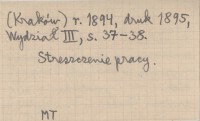 (Kraków) r. 1894, druk 1895,
Wydział III, s. 37-38.
Streszczenie pracy.
MT